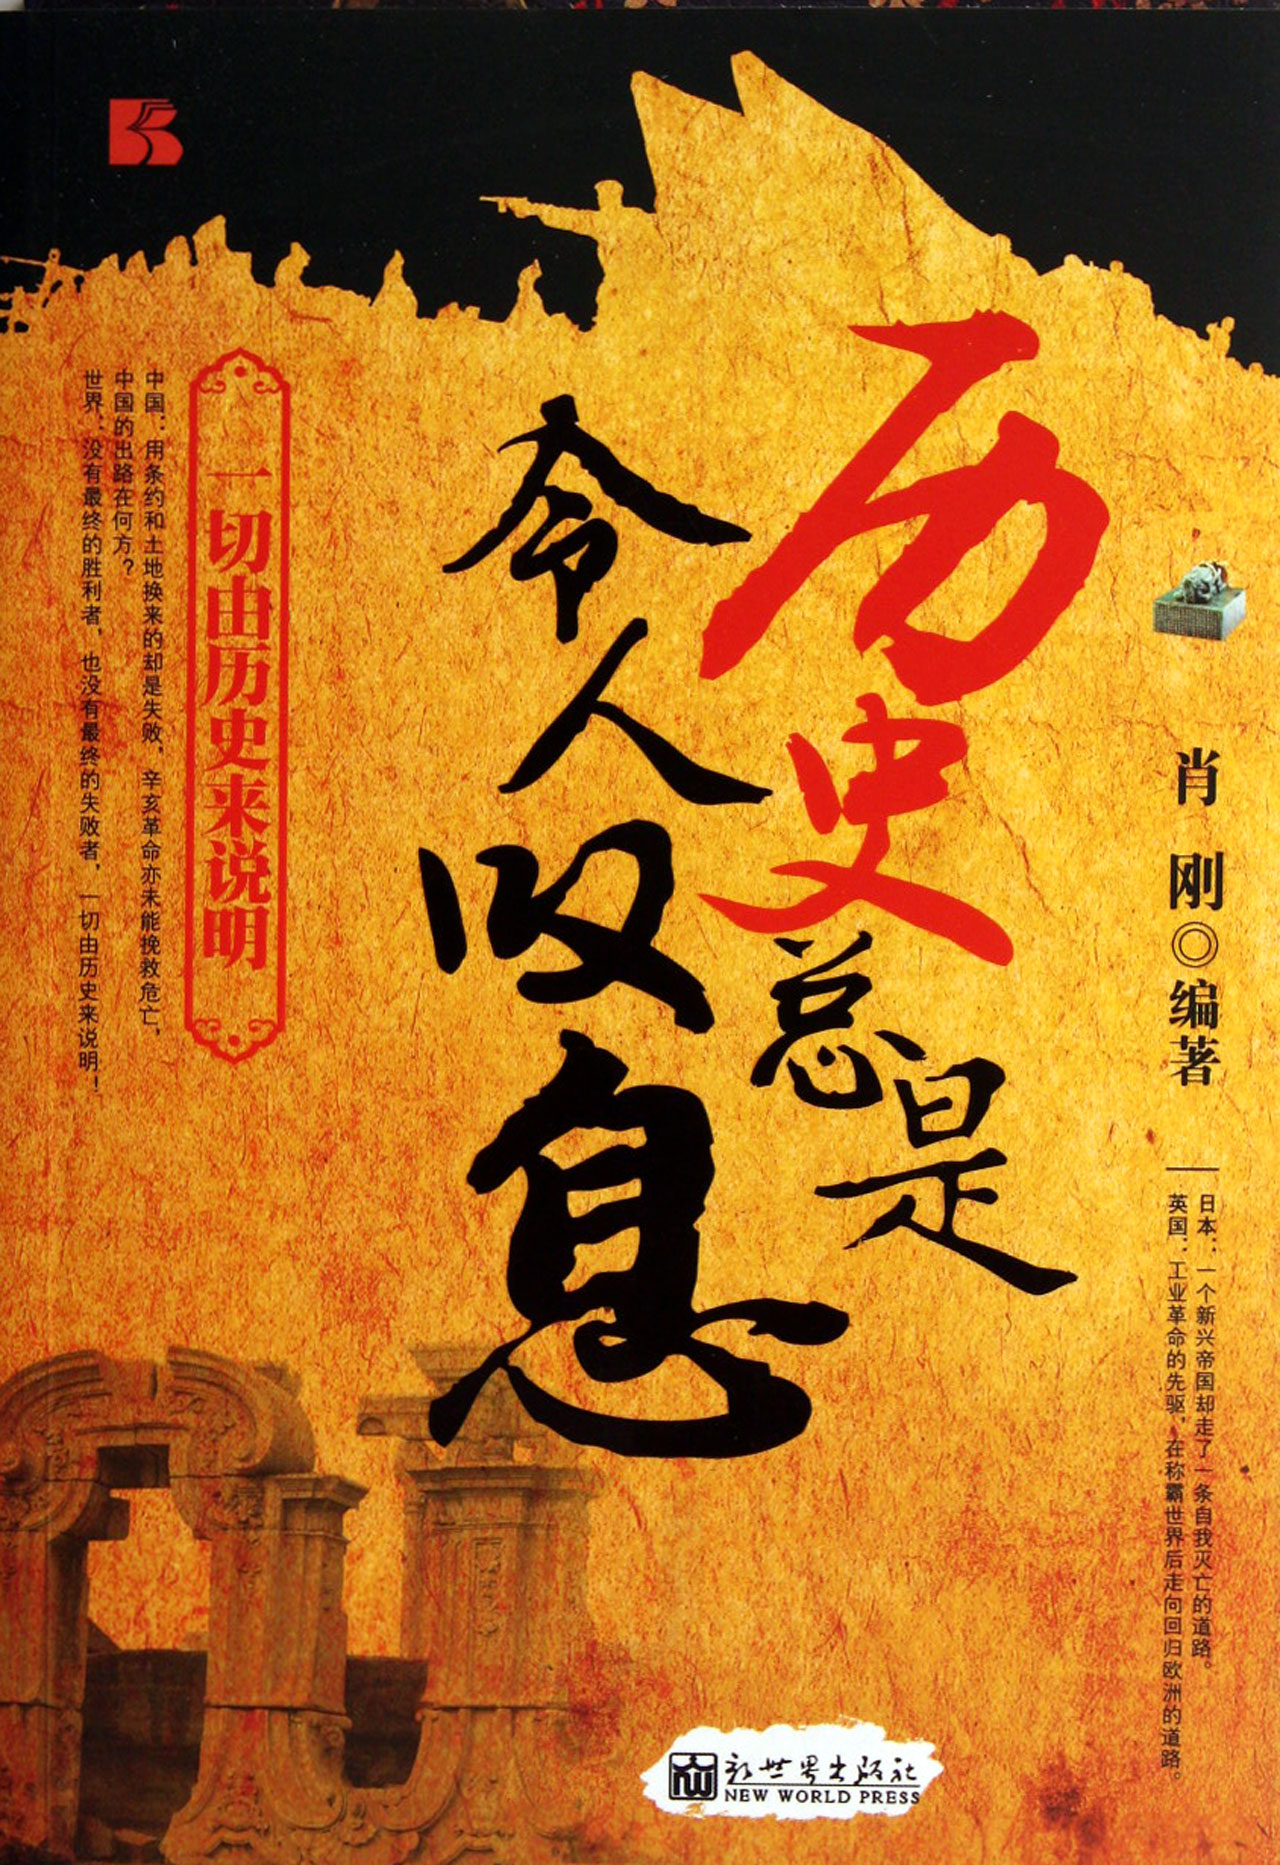 历史
总是
令人叹息
肖 刚◎编著
日本：一个新兴帝国却走了一条自我灭亡的道路。
英国：工业革命的先驱，在称霸世界后走向回归欧洲的道路。
一切由历史来说明
中国：用条约和土地换来的却是失败，辛亥革命亦未能挽救危亡，
中国的出路在何方？
世界：没有最终的胜利者，也没有最终的失败者，一切由历史来说明！
新世界出版社
NEW WORLD PRESS